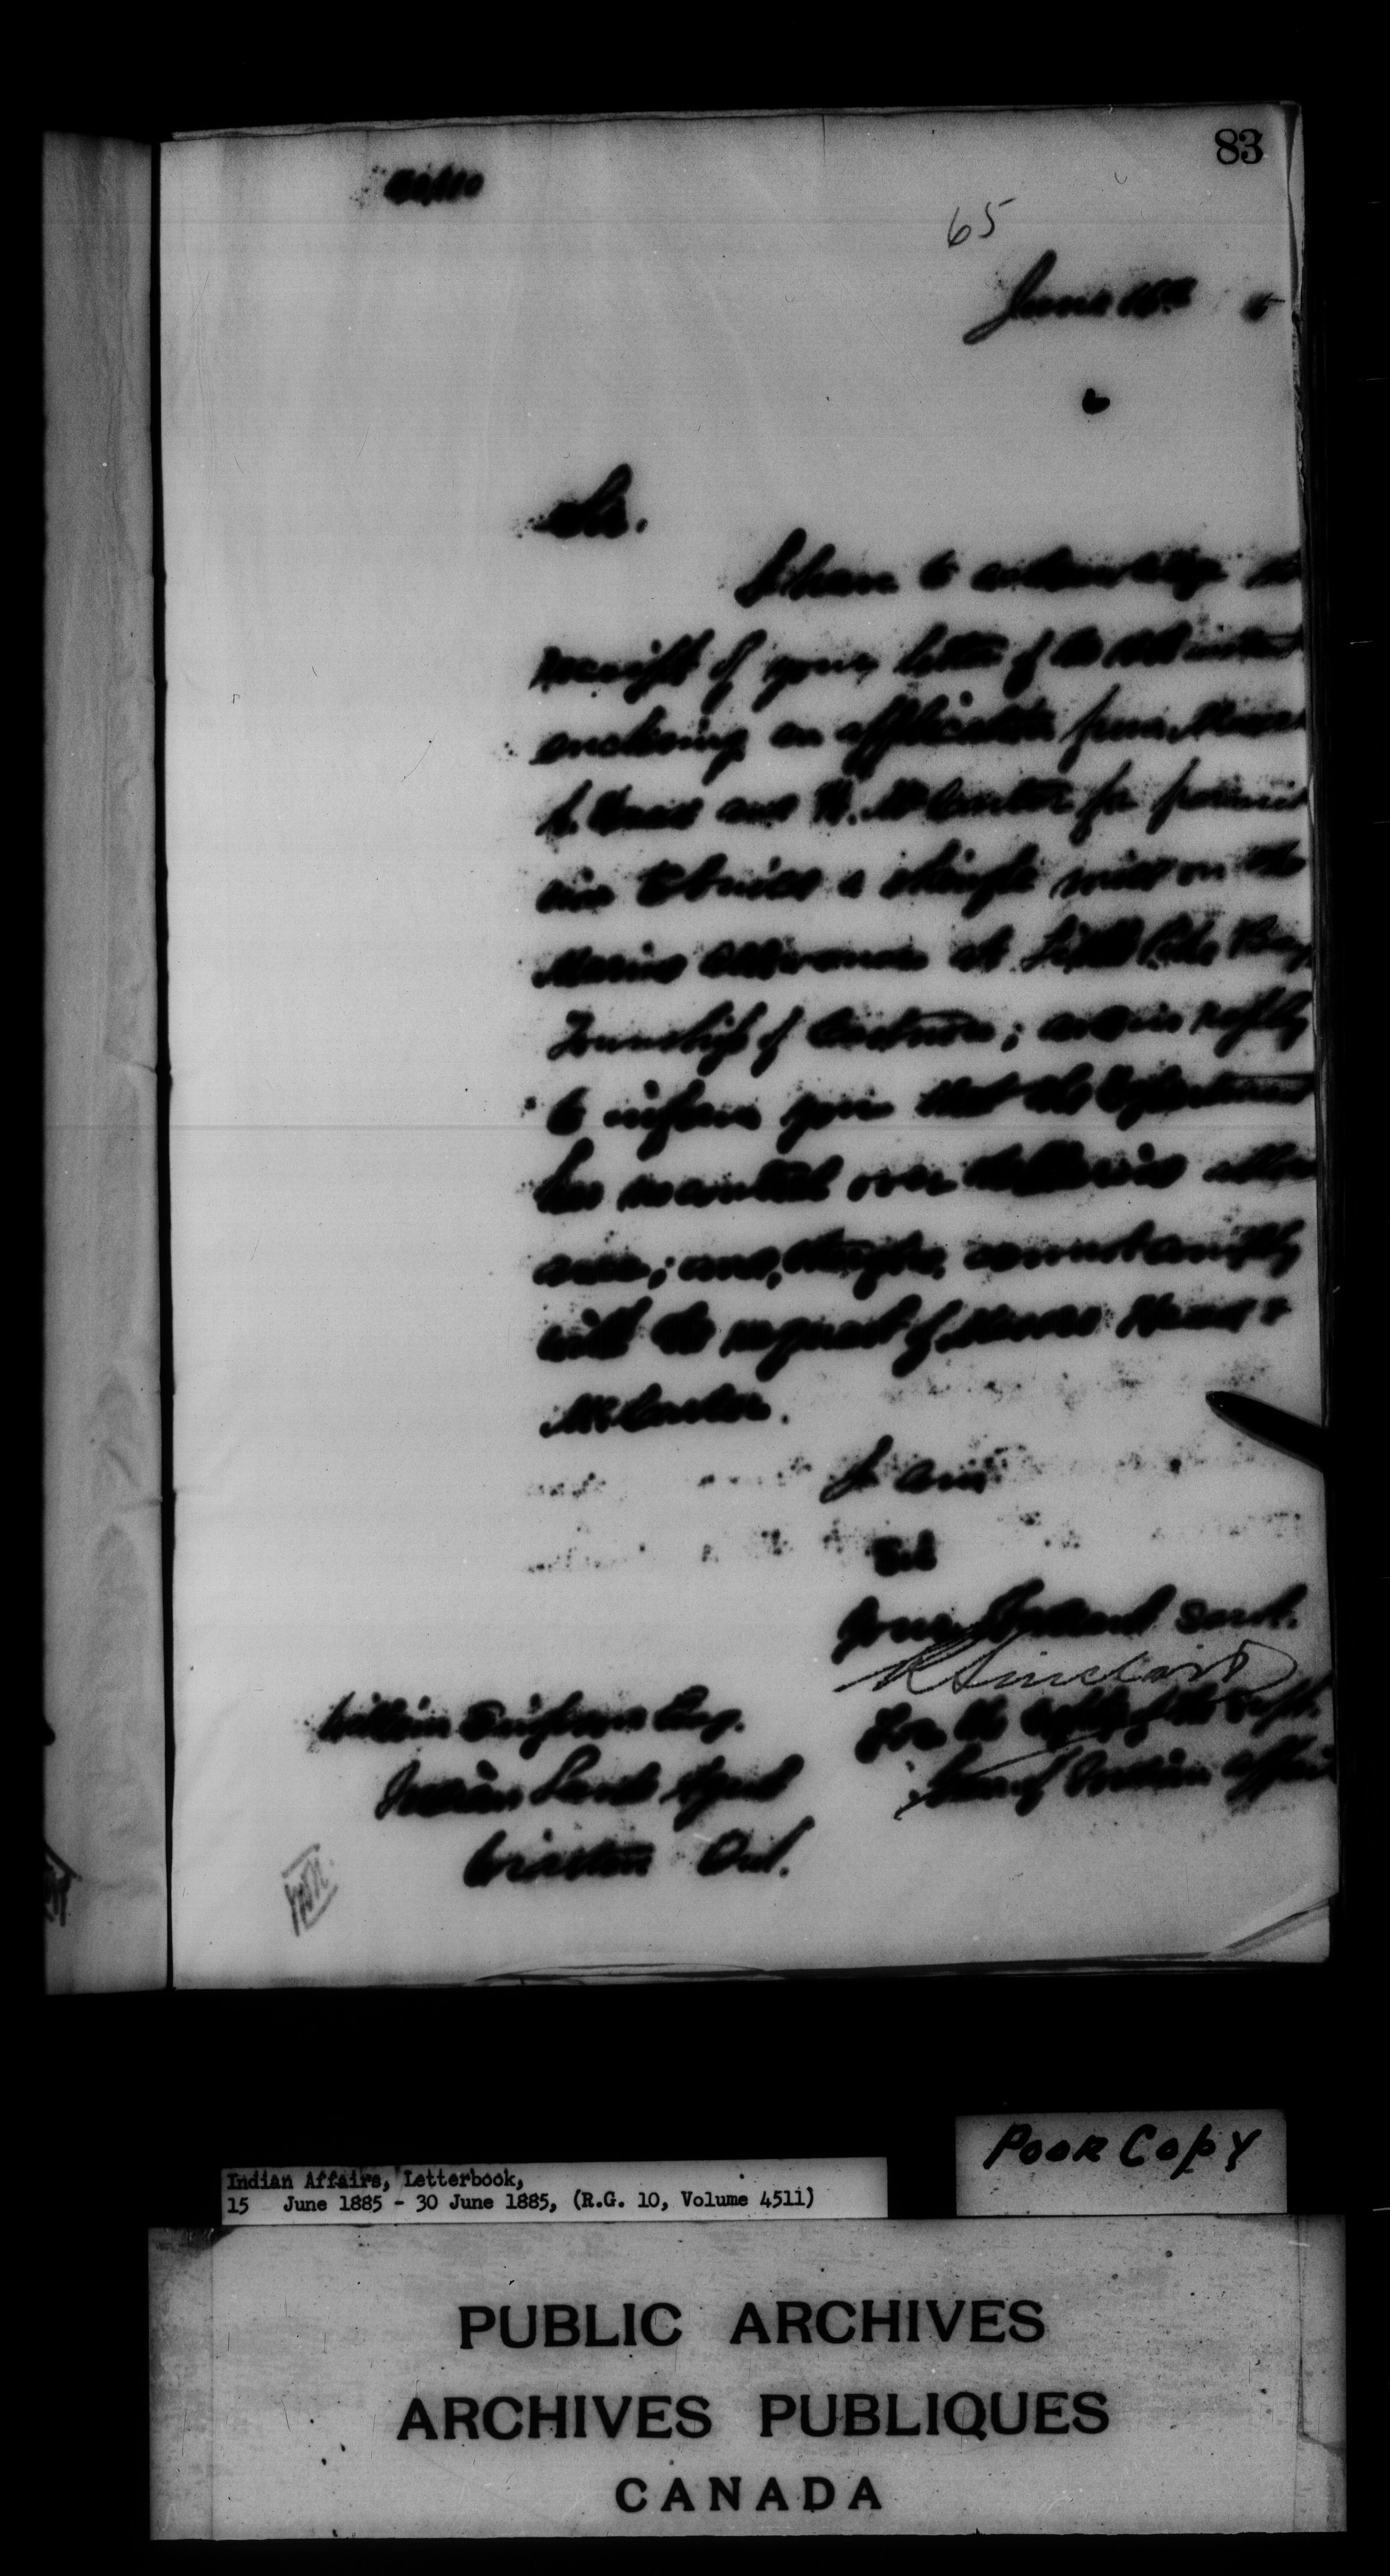 83
65
June 16th 5
Sir.
I have to acknowledge the
receipt of your letter of the instant
enclosing an application from Messrs
and H. McCarter for permis
sion to build a shingle mill on the
Marine allowance at Little Pike Bay,
Township of Eastnor; and in reply
to inform you that the Department
has no control over the Marine allow
ance; and, therefore, cannot comply
with the request of Messrs &
McCarter.
I am
Sir
Your Obedient Servt.
R Sinclair
For the Deputy of the Supt.
Gen of Indian Affairs
William Simpson Esq.
Indian Lands Agent
Wiarton Ont.
Poor Copy
Indian Affairs, Letterbook,
15 June 1885 - 30 June 1885, (R.G. 10, Volume 4511)
PUBLIC ARCHIVES
ARCHIVES PUBLIQUES
CANADA